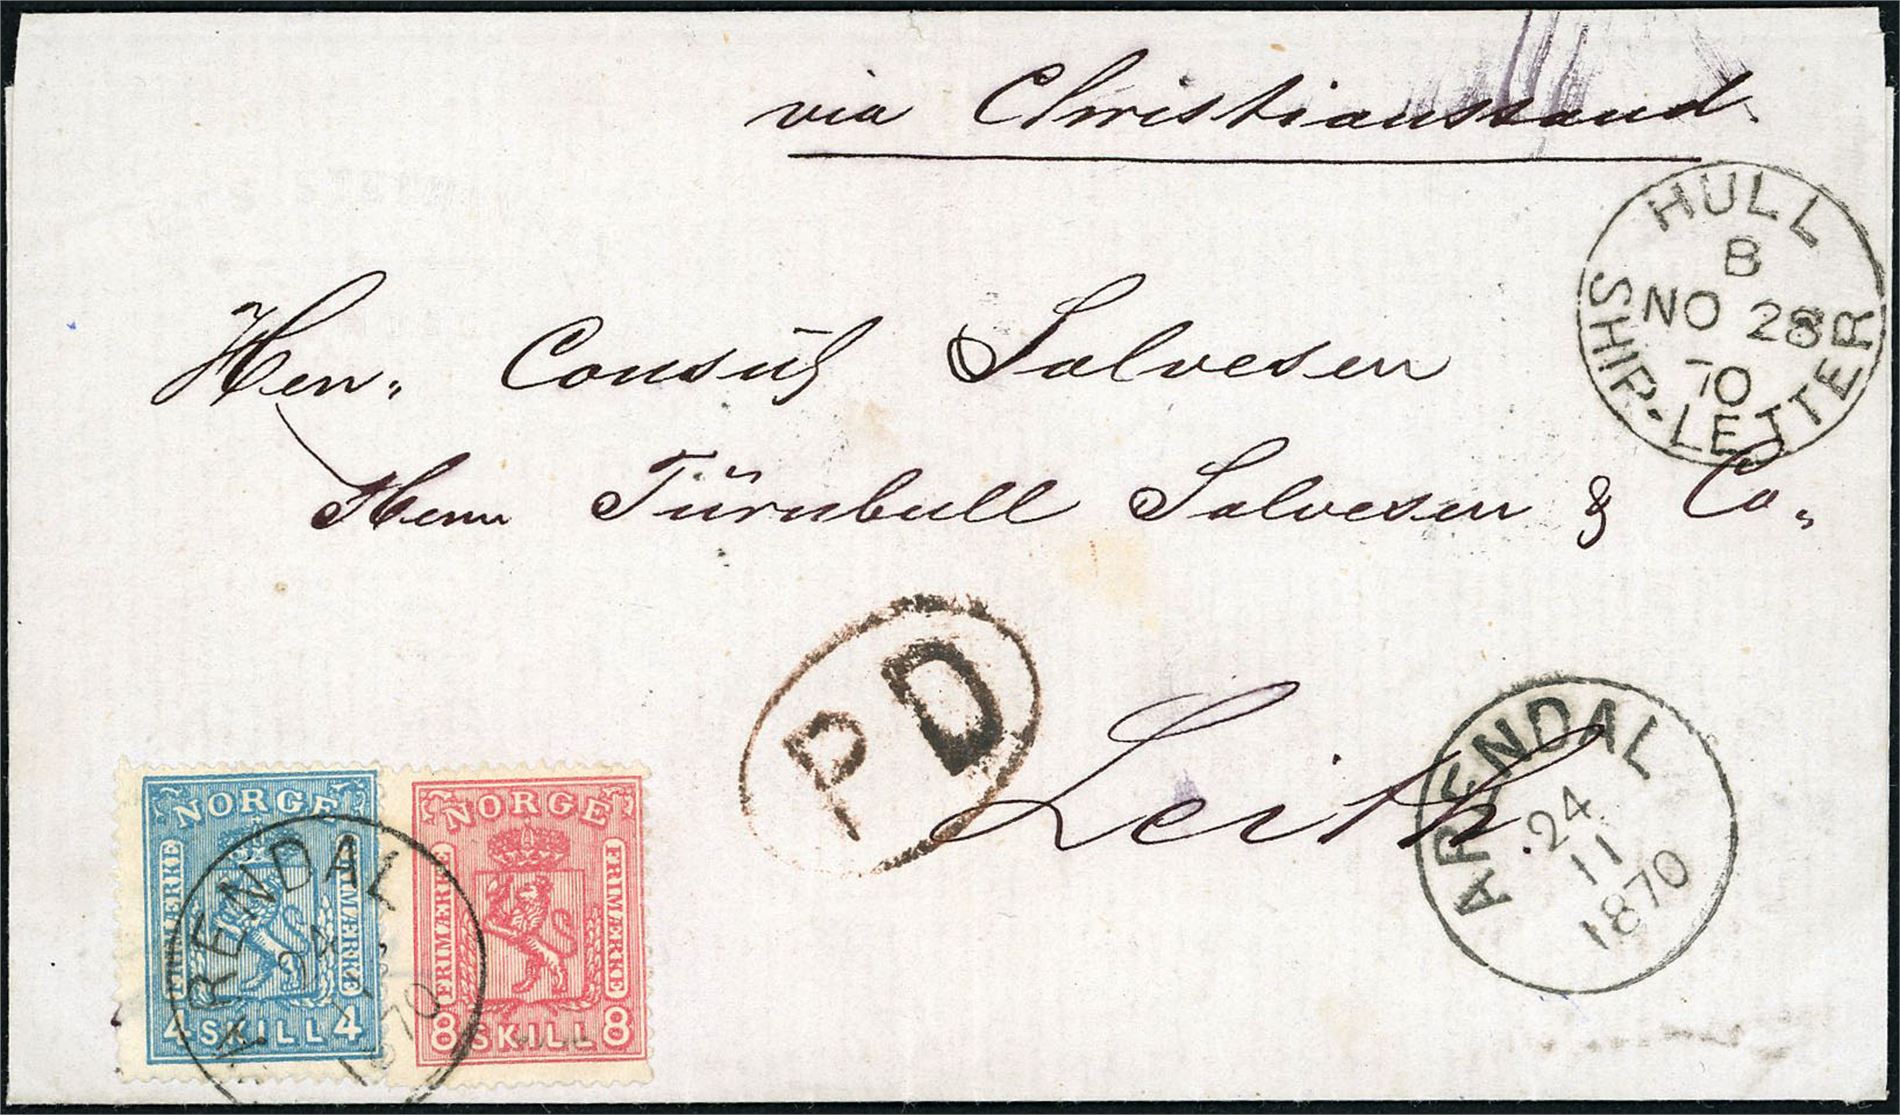 via Christianssand.
HULL
B
NO 28
70
SHIP-LETTER
Herr Consul Salvesen
Herrn Türnbull Salvesen & Co.
PD
Leith.
ARENDAL
24
11
1870
NORGE
FRIMÆRKE
FRIMÆRKE
4 SKILL 4
NORGE
FRIMÆRKE
FRIMÆRKE
8 SKILL 8
ARENDAL
24
11
1870